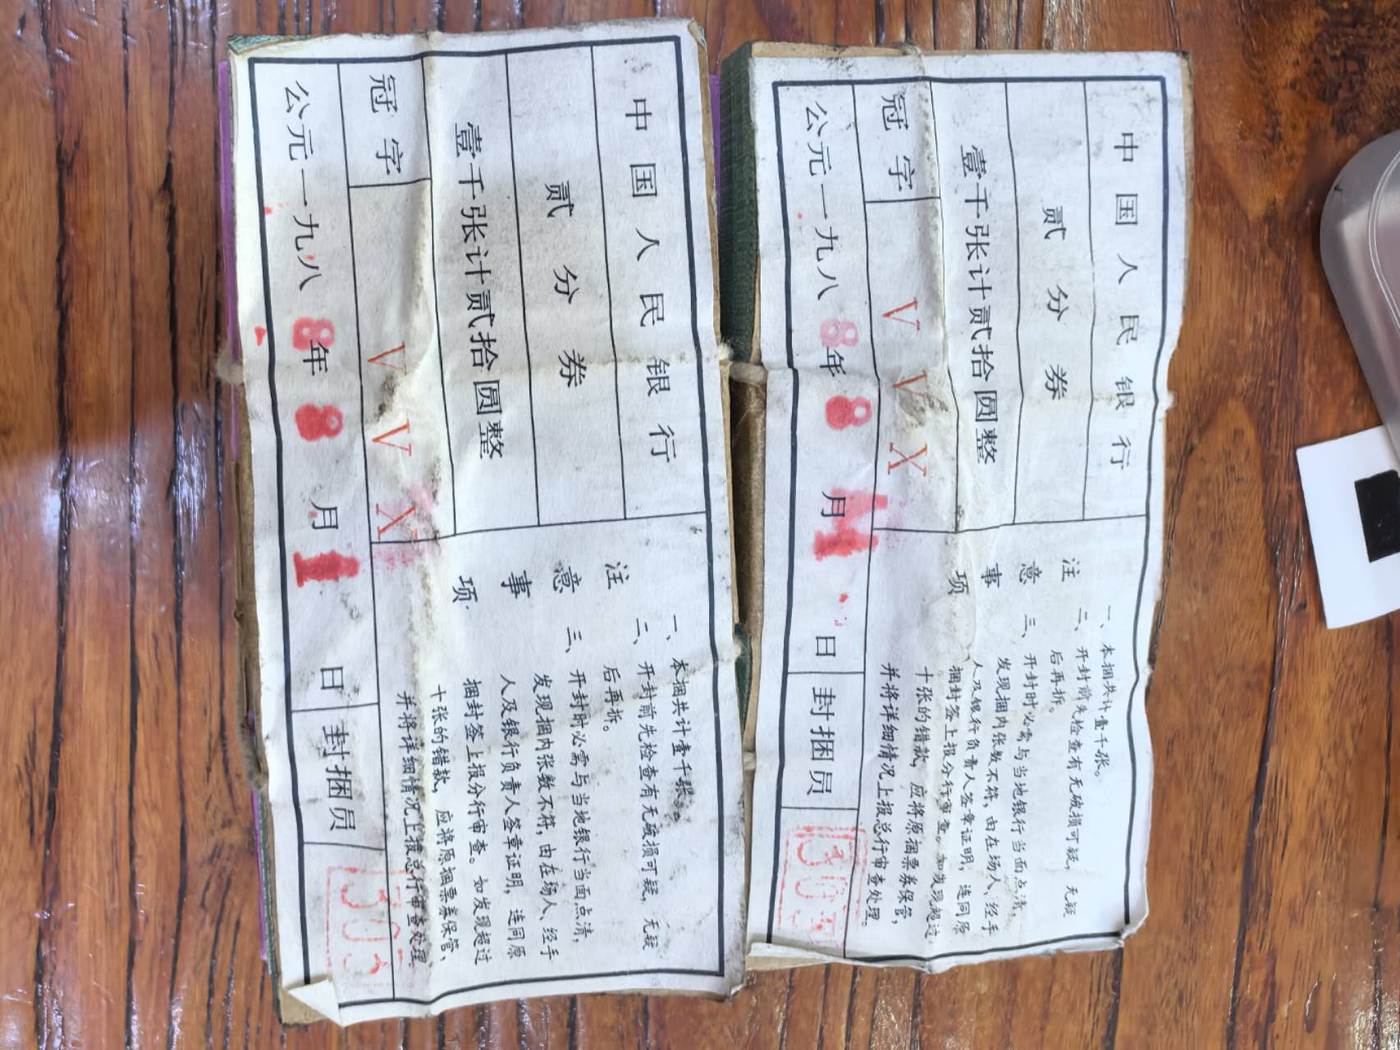 中国人民银行
贰分券
壹千张计贰拾圆整
冠字 V V X
公元一九八8年8月1日
封捆员
注意事项
一、本捆共计壹千张。
二、开封前先检查有无破损可疑，无疑
后再拆。
三、开封时必需与当地银行当面点清，
发现捆内张数不符，由在场人、经手
人及银行负责人签章证明，连同原
捆封签上报分行审查。如发现超过
十张的错款，应将原捆票券保管，
并将详细情况上报总行审查处理。
中国人民银行
贰分券
壹千张计贰拾圆整
冠字 V V X
公元一九八8年8月日
封捆员
注意事项
一、本捆共计壹千张。
二、开封前先检查有无破损可疑，无疑
后再拆。
三、开封时必需与当地银行当面点清，
发现捆内张数不符，由在场人、经手
人及银行负责人签章证明，连同原
捆封签上报分行审查。如发现超过
十张的错款，应将原捆票券保管，
并将详细情况上报总行审查处理。